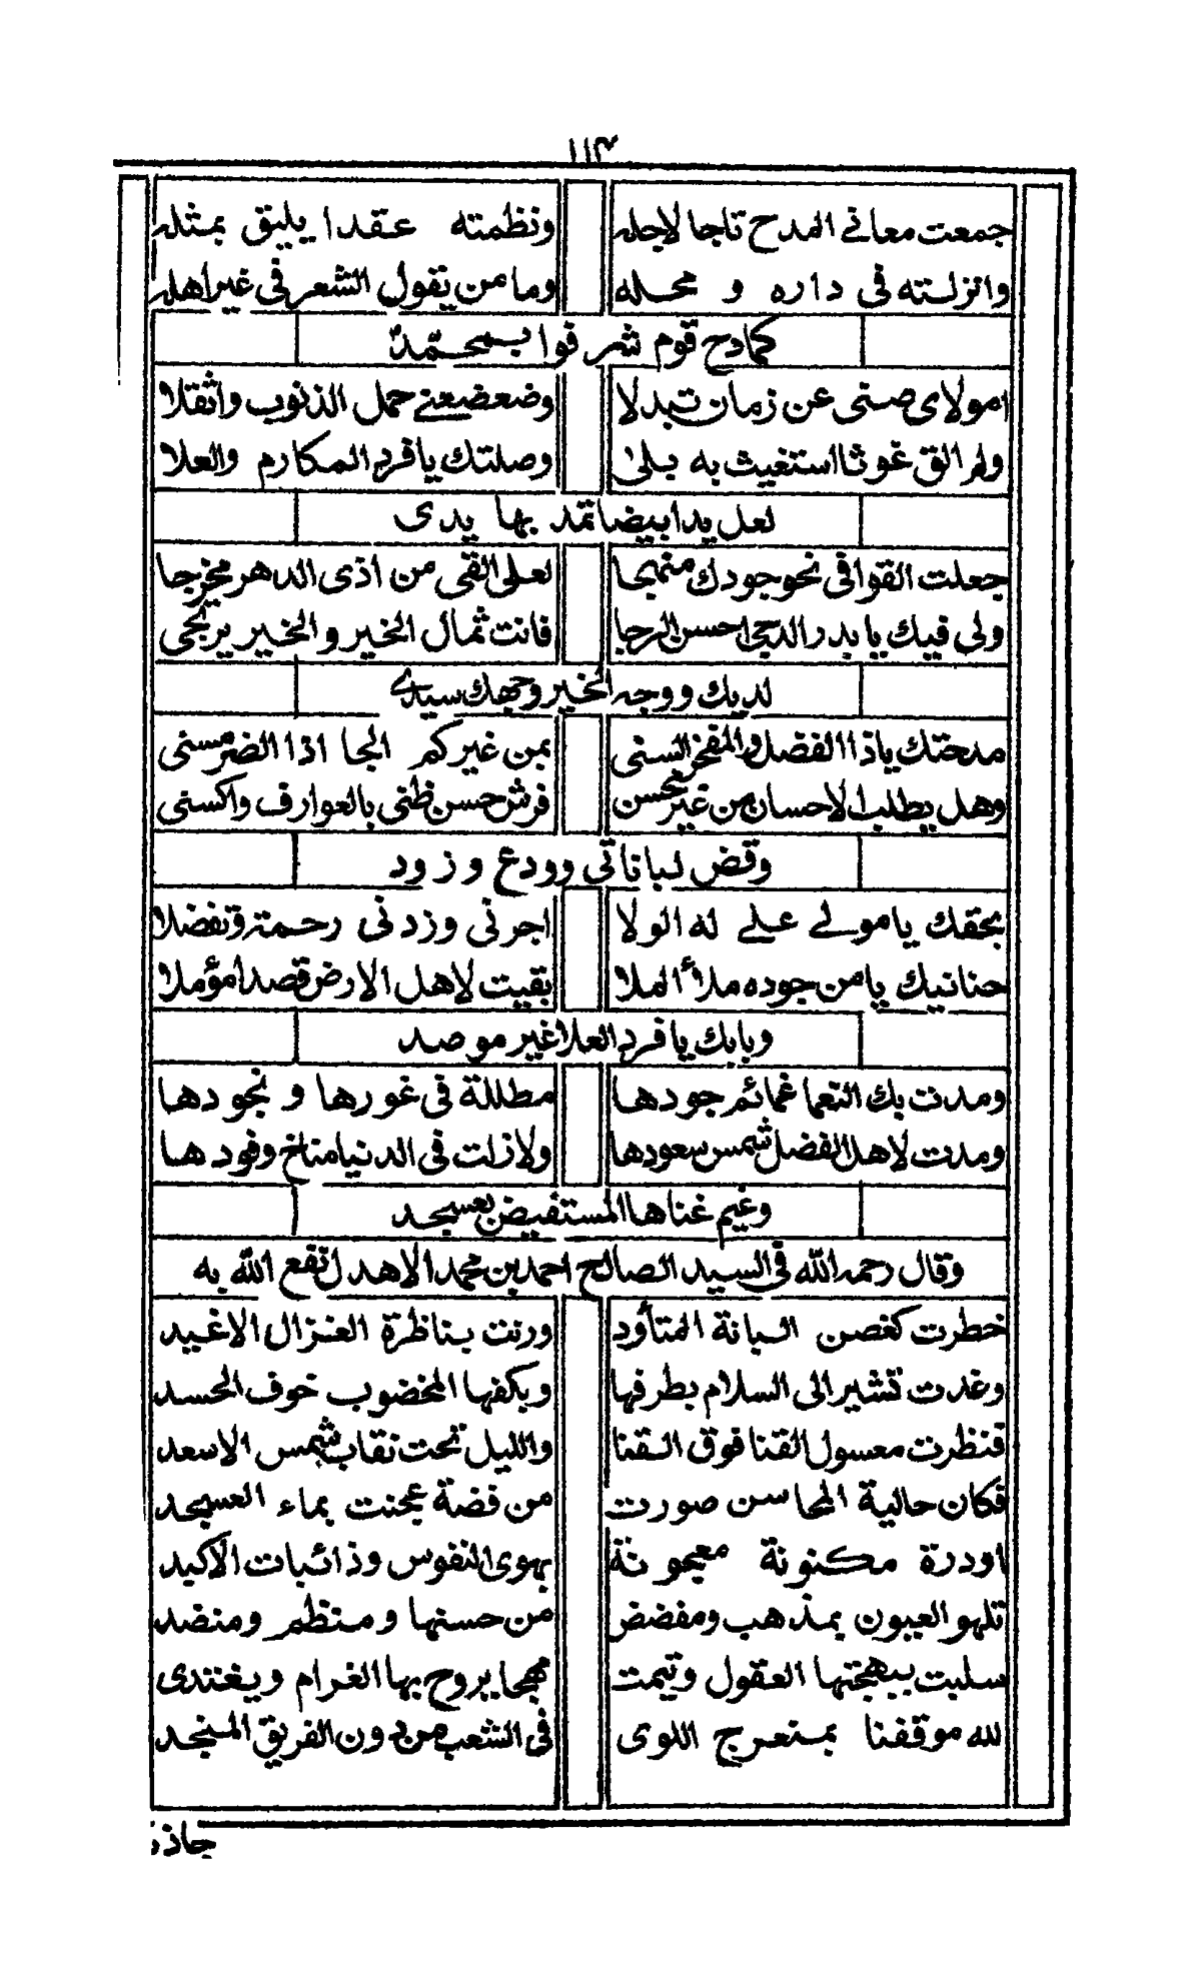 ١١٣
جمعت معانى المدح تاجا لاجله ونظمته عقدا يليق بمثله
وانزلته فى داره و محله وما من يقول الشعر فى غير اهله
كمادح قوم شرفوا بمحمد
امولاى صنى عن زمان تبدلا وضعضعنى حمل الذنوب واثقلا
ولم الق غوثا استغيث به بلى وصلتك يا فرد المكارم والعلا
لعل يدا بيضا تمد بها يدى
جعلت القوافى نحو جودك منهجا لعلى القى من اذى الدهر مخرجا
ولى فيك يا بدر الدجى احسن الرجا فانت ثمال الخير و الخير يرتجى
لديك ووجه الخير وجهك سيدى
مدحتك ياذا الفضل والمفخر السنى بمن غيركم الجا اذا الضر مسنى
وهل يطلب الاحسان من غير محسن فرش حسن ظنى بالعوارف واكسنى
وقض لباناتى وودع وزود
بحقك يا مولى على له الولا اجرنى وزدنى رحمة وتفضلا
حنانيك يا من جوده ملأ الملا بقيت لاهل الارض قصدا مؤملا
وبابك يا فرد العلا غير موصد
ومدت بك النعما غمائم جودها مطللة فى غورها و نجودها
ومدت لاهل الفضل شمس سعودها ولازلت فى الدنيا مناخ وفودها
وغيم غناها المستفيض بعسجد
وقال رحمه الله فى السيد الصالح احمد بن محمد الاهدل نفع الله به
خطرت كغصن البانة المتأود ورنت بناظرة الغزال الاغيد
وغدت تشير الى السلام بطرفها وبكفها المخضوب خوف الحسد
فنظرت معسول القنا فوق النقا والليل تحت نقاب شمس الاسعد
فكان حالية المحاسن صورت من فضة عجنت بماء العسجد
اودرة مكنونة معجونة بهوى النفوس وذائبات الاكبد
تلهو العيون بمذهب ومفضض من حسنها ومنظم ومنضد
سلبت ببهجتها العقول وتيمت مهجا يروح بها الغرام ويغتدى
لله موقفنا بمنعرج اللوى فى الشعب من دون الفريق المنجد